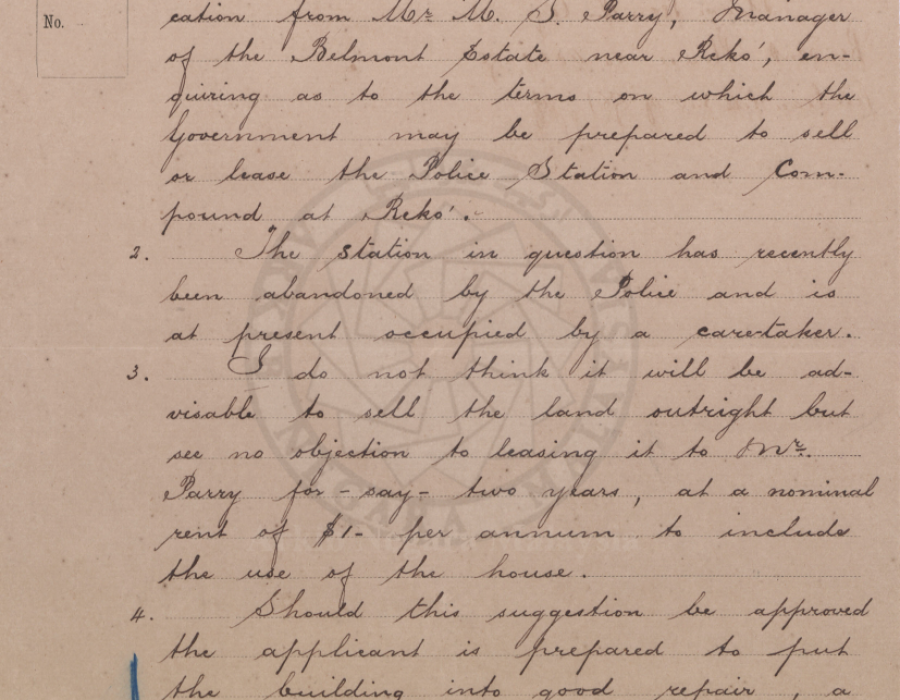 No.
cation from Mr M. S. Parry, Manager
of the Belmont Estate near Rekó, en-
quiring as to the terms on which the
Government may be prepared to sell
or lease the Police Station and Com-
pound at Rekó.
2. The station in question has recently
been abandoned by the Police and is
at present occupied by a care-taker.
3. I do not think it will be ad-
visable to sell the land outright but
see no objection to leasing it to Mr.
Parry for - say - two years, at a nominal
rent of $1- per annum to include
the use of the house.
4. Should this suggestion be approved
the applicant is prepared to put
the building into good repair, a